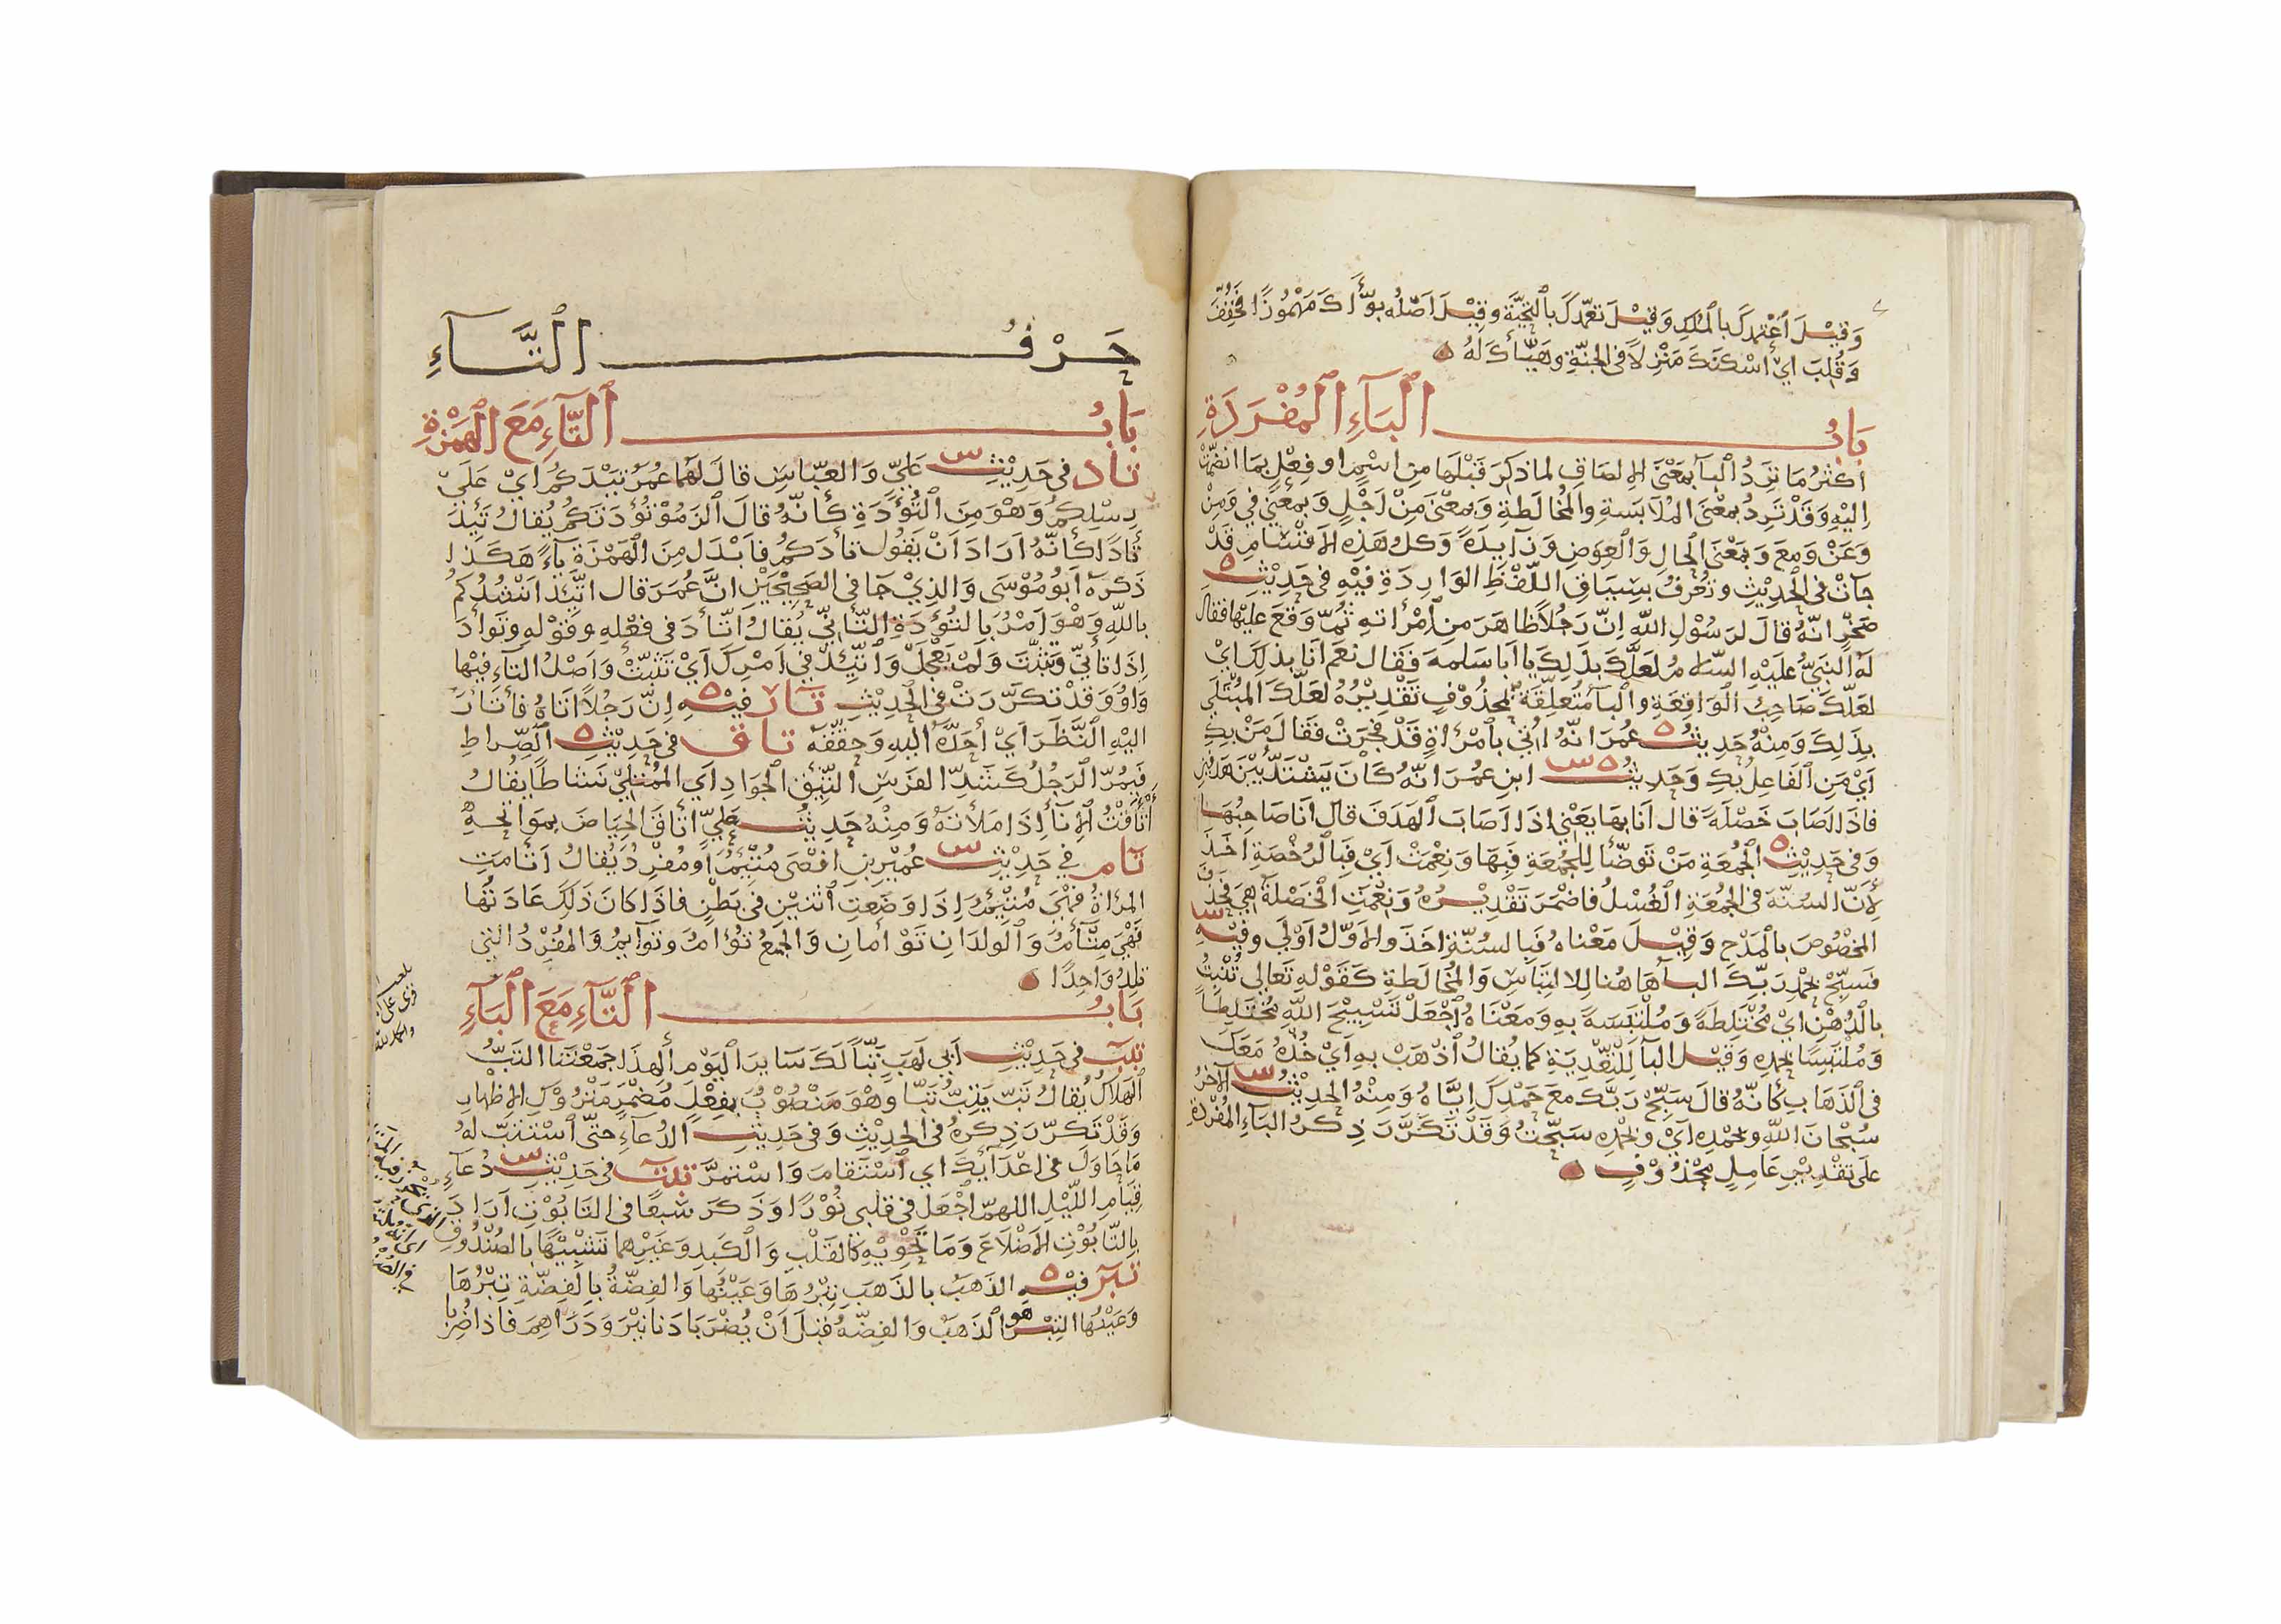 وَقِيْلَ اعْتَمَدَكَ بالمُلْكِ وَقِيْلَ تَعَمَّدَكَ بالتَّحِيَّةَ وقيْلَ اَصْلُه بوَّأَكَ مَهْمُوزًا فخُفِّفَ
وَقُلِبَ ايْ اَسْكَنَكَ مَنْزِلاً في الجنّةِ وهَيَّأَكَ لَهُ
بَابُ البَآءِ المُفْرَدَةِ
اكثرُ مَا تَرِدُ البآ بمَعْنَى الالصَاقِ لما ذكِرَ قَبْلهَا مِن اسْمٍ او فِعْلٍ بمَا انضَمّتْ
اِليْهِ وَقَدْ تَرِدُ بمعْنَى المُلَابَسَةِ والمُخَالَطَةِ وَبمعْنَى مِنْ اَجْلِ وَبمعْنَى في وَمِنْ
وَعَنْ وَمِعَ وَبمَعْنَى الحالِ وَالعِوَضِ وَزَايدَةً وَكلُ هَذِهِ الاَقْسَامِ قَدْ
جآتْ في الحَدِيْثِ وتُعْرَفُ بسِيَاقِ اللّفْظِ الوَارِدَةِ فيْهِ في حَدِيْثِ ه
صَخْرٍ انّهُ قالَ لرَسُوْلِ اللّهِ اِنّ رَجُلاً ظاهَرَ مِن امْرأتهِ ثُمّ وَقَعَ عليْها فقال
لَهُ النبيُّ عليْهِ السّلام لعَلّكَ بذَلِكَ يا ابَا سَلمةَ فَقَال نعَم انَا بذلِكَ ايْ
لعَلّكَ صَاحِبُ الوَاقِعَةِ والبآ مُتعلِّقَة بمحذُوْفٍ تَقْدِيْرُهُ لعَلّكَ المُبْتَلَى
بِذَلِكَ وَمِنْهُ حَدِيثُ ه عُمَرَ انّهُ اُتِيَ بامْرَاةٍ قَدْ فجَرَتْ فقَالَ مَنْ بِكِ
ايْ مَنِ الفَاعِلُ بكِ وَحَدِيثُ ه س ابنِ عمُرَ انّهُ كَانَ يَشْتَدُّ بيْنَ هَدفيْنِ
فاذَا اَصَابَ خَصْلَةً قال اَنَا بهَا يعَنِي اذَا اَصَابَ الهَدَفَ قالَ اَنَا صَاحِبُهَا
وَفي حَدِيْثِ ه الجُمعَةِ مَنْ تَوَضّأ لِلجُمعَةِ فَبهَا وَنِعْمَتْ اَيْ فَبِالرُخْصَةِ اَخَذَ
لأَنّ السُنّةَ في الجُمعَةِ الغُسْلُ فاَضْمَرَ تَقْدِيْرُهُ وَنِعْمَتِ الخَصْلَةُ هِيَ فحَذَفَ
المَخْصُوصَ بالمَدْحِ وَقِيْلَ مَعْناهُ فَبِالسُنّةِ اَخَذَ والاوّلُ اَوْلَى وفيْهِ س
فسَبّحْ بحَمْدِ رَبّكَ البآ هَاهُنا للالتِبَاسِ وَالمُخَالَطَةِ كقَوْلهِ تَعَالى تُنْبِتُ
بالدُهْنِ ايْ مُخْتَلِطَةً وَمُلْتَبِسَةً بهِ وَمَعْنَاهُ اجْعَلْ تَسْبِيْحَ اللّهِ مُخْتَلِطًا
وَمُلْتَبِسًا بحمدِهِ وَقيْل البآ لِلتّعْدِيَةِ كما يُقالُ اذْهَبْ بهِ ايْ خُذْهُ مَعَكَ
في الذَهَابِ كَأنّهُ قالَ سَبّحْ رَبّكَ معَ حَمْدِكَ اِيّاهُ وَمِنْهُ الحدِيْثُ س الآخرُ
سُبْحَانَ اللّهِ وبحَمْدِهِ ايْ وبحَمْدِهِ سَبّحْتُ وَقَدْ تَكَرَّرَ ذِكرُ البَآءِ المُفْرَدَةِ
علَى تقْدِيْرِ عَامِلٍ مَحْذُوْفٍ
حَرْفُ التَّآءِ
بَابُ التَّآءِ مَعَ الهَمْزَةِ
تاد في حَدِيْثِ س عَليّ وَالعبّاسِ قالَ لهُمَا عمُرُ تَيْدَكُم ايْ عَلَى
رِسْلِكُم وَهْوَ مِنَ التُؤَدَةِ كَأنّهُ قالَ الزَمُوْا تُؤدَتكُم يُقَالُ تَئِدَ
تَأدًا كأَنّهُ ارَادَ اَنْ يَقُولَ تأدَكُم فاَبْدَلَ مِنَ الهَمْزَةِ يَآءً هَكَذَا
ذَكَرَهُ اَبُو مُوْسَى وَالذِيْ جَا في الصَحِيْحَيْنِ انَّ عُمَرَ قال اتّئِدْ انْشُدُكُم
باللّهِ وَهْوَ اَمْرٌ بالتُؤَدَةِ التَّأنّي يُقالُ اتّأدَ في فعْلِهِ وقَوْلهِ وتَوأدَ
اِذَا تأنّى وَتثَبَّتَ وَلَمْ يَعْجَلْ وَاتّئِدْ في امْرِكَ ايْ تَثَبّتْ وَاَصْلُ التآءِ فيْها
وَاوٌ وَقَدْ تكرّرَتْ في الحَدِيْثِ تَأر فيْهِ ه اِنّ رَجُلاً اتَاهُ فأتأرَ
اليْهِ النَّظَرَ ايْ اَحَدَّهُ اليْهِ وَحَقّقَهُ تاق في حَدِيْثِ ه الصِّرَاطِ
فَيمُرّ الرَجُلُ كشَدِّ الفرَسِ التّئِقِ الجَوَادِ اَي المُمْتلِئ نَشَاطًا يقُالُ
أَتْأَقْتُ الانَآ إذَا مَلأتهُ وَمِنْهُ حَدِيْثُ عَلِيّ أتأقَ الحِيَاضَ بموَاتحِهِ
تَام في حَدِيْثِ س عُمَيْرِ بنِ افْصَى مُتْئِمٌ اَو مُفْرِدٌ يُقَالُ اَتأمَتِ
المرْاةُ فهْيَ مُتْئِمٌ اِذَا وَضَعتِ اثنَيْنِ في بَطْنٍ فاذَا كانَ ذَلِكَ عَادَتُهَا
فَهْيَ مِتْآمٌ وَالوَلدَانِ تَوْأمانِ وَالجمْعُ تُؤَامٌ وتَوَآيمُ وَالمُفْرِدُ التِي
تلِدُ وَاحِدًا
بَابُ التَّآءِ مَعَ البَآءِ
تبب في حَدِيْثِ اَبي لَهَبٍ تَبّاً لَكَ سَايرَ اليَوْمِ أَلهذَا جَمَعْتَنَا التَبُّ
الهَلَاكُ يُقَالُ تَبّ يَتِبُّ تَبّا وهْوَ مَنصُوْبٌ بفِعْلٍ مُضْمَرٍ مَتْرُوْكِ الاِظْهَارِ
وَقَدْ تَكَرّرَ ذِكرهُ في الحَدِيْثِ وَفي حَدِيْثِ الدُعَآءِ حتّى اسْتَتبّ لَهُ
مَا حَاوَلَ في اعْدَآيكَ اي اسْتَقَامَ وَاسْتمَرَّ تبت في حَدِيْثِ س دُعَآءِ
قِيَامِ اللّيْلِ اللهُمّ اجْعَلْ في قلْبي نُوْرًا وَذَكَرَ سَبعًا في التَابُوْتِ اَرَادَ
بالتّابُوْتِ الاَضْلَاعَ وَمَا تَحْوِيْهِ كالقَلْبِ وَالكَبِدِ وَغَيْرِهِمَا تَشْبِيْهًا بالصُنْدُوقِ
تبر فيْهِ ه الذَهَبُ بالذَهَبِ تِبْرُهَا وَعَيْنُهَا وَالفِضّةُ بالفِضّةِ تِبْرُهَا
وَعَيْنُهَا التِبْرُ هو الذَهَبُ وَالفِضّةُ قبْلَ اَنْ يُضْرَبَا دَنانيْرَ وَدَرَاهِمَ فاذا ضُرِبَا